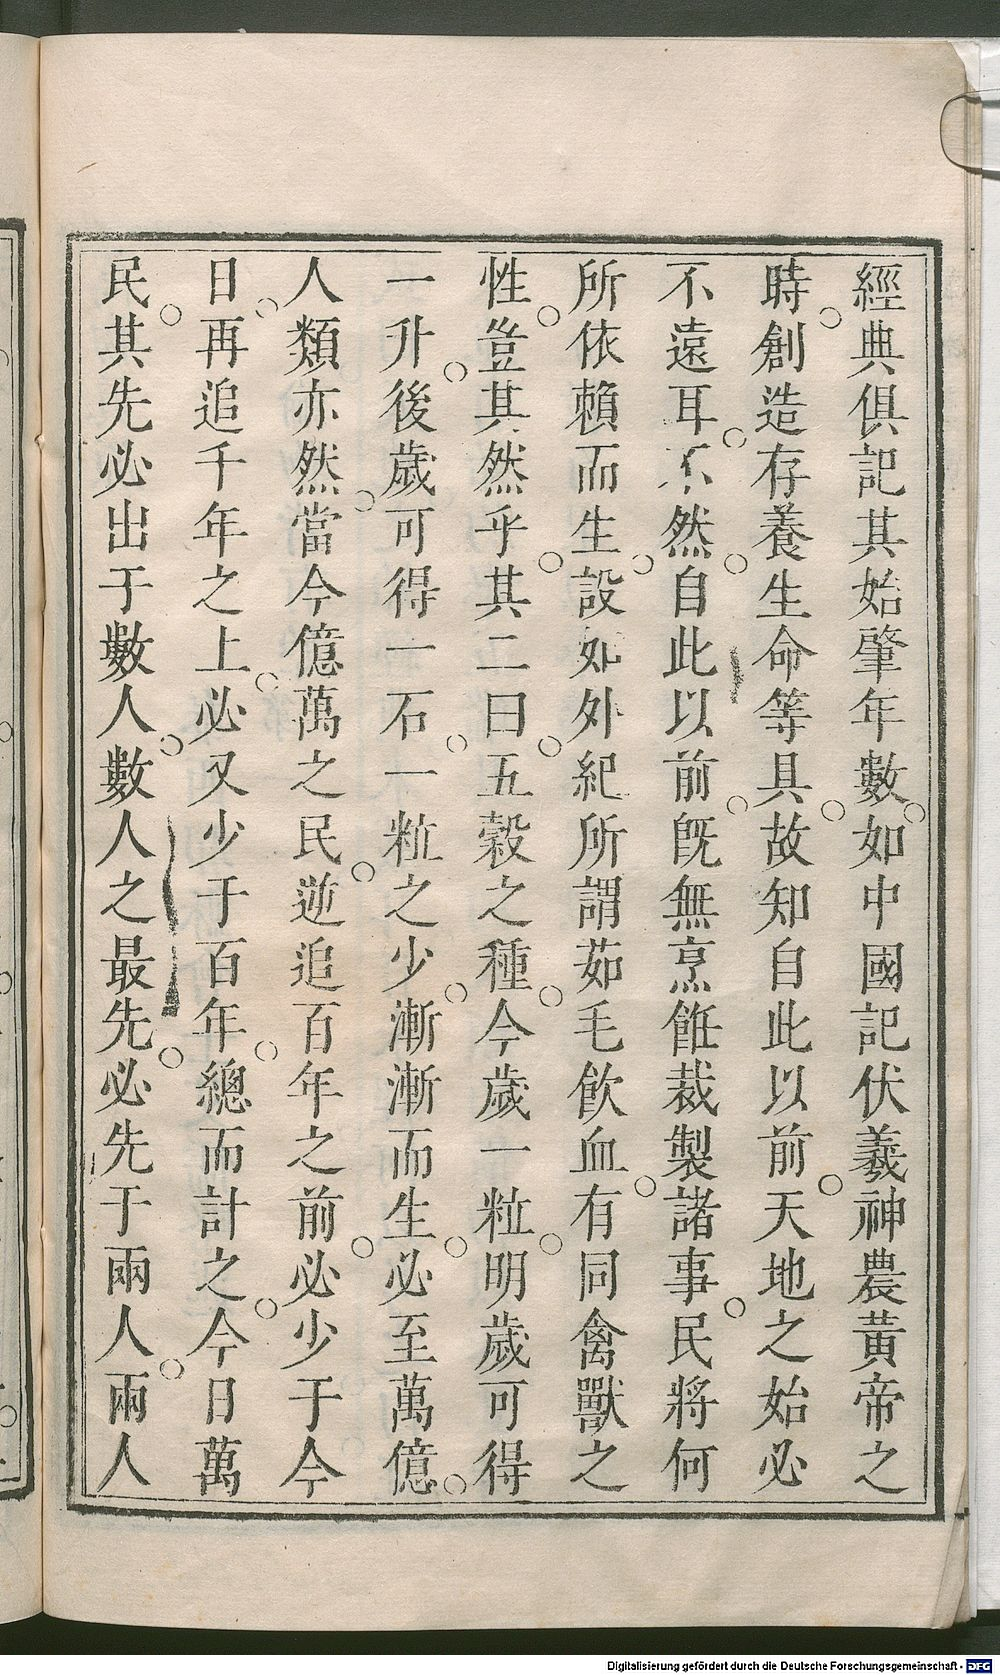 經典俱記其始肇年數如中國記伏羲神農黃帝之
時創造存養生命等具故知自此以前天地之始必
不遠耳不然自此以前旣無烹飪裁製諸事民將何
所依賴而生設如外紀所謂茹毛飮血有同禽獸之
性豈其然乎其二曰五穀之種今歲一粒明歲可得
一升後歲可得一石一粒之少漸漸而生必至萬億
人類亦然當今億萬之民逆追百年之前必少于今
日再追千年之上必又少于百年總而計之今日萬
民其先必出于數人數人之最先必先于兩人兩人
Digitalisierung gefördert durch die Deutsche Forschungsgemeinschaft - DFG